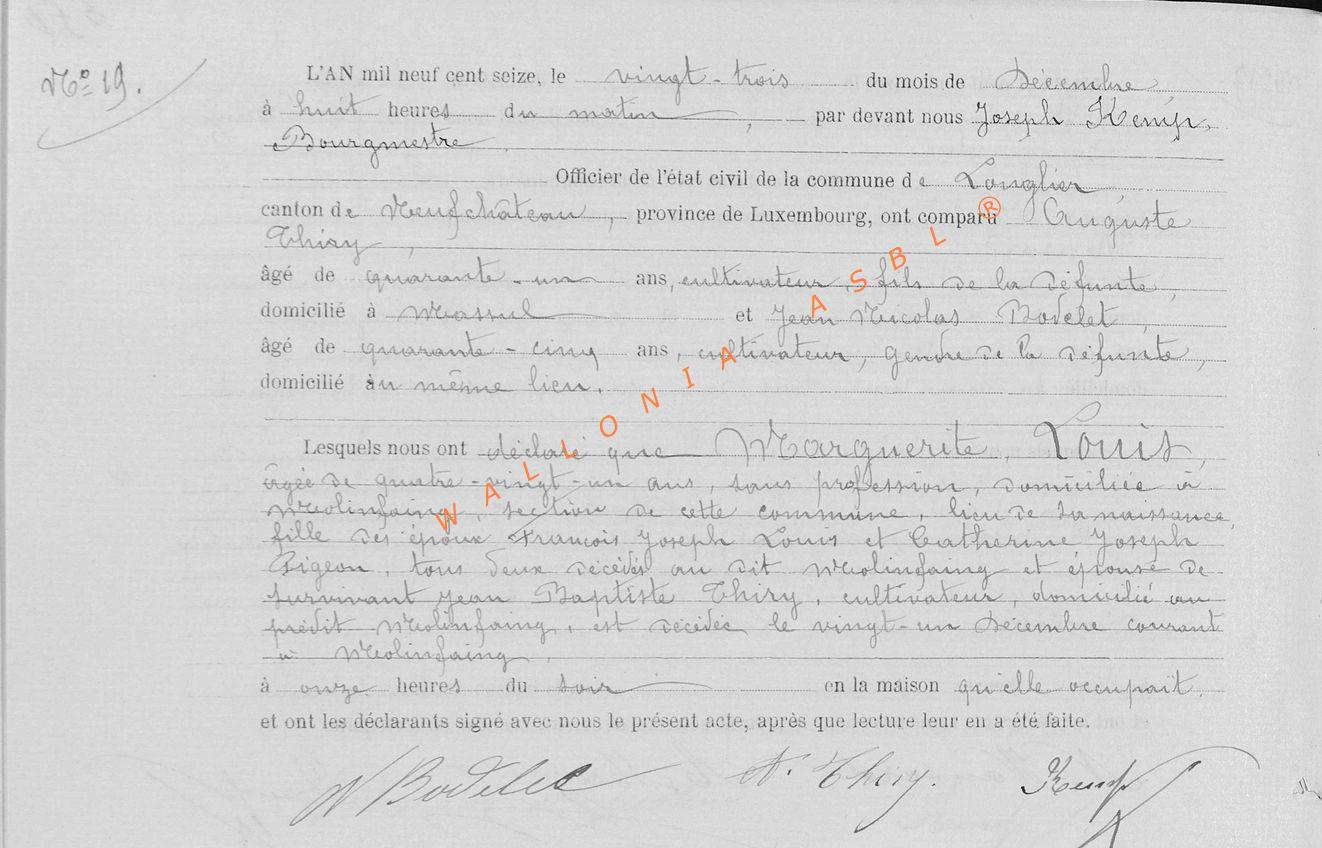 N° 19.
L'AN mil neuf cent seize, le vingt-trois du mois de Décembre,
à huit heures du matin, par devant nous Joseph Kemp,
Bourgmestre
Officier de l'état civil de la commune de Longlier
canton de Neufchâteau, province de Luxembourg, ont comparu Auguste
Thiry,
âgé de quarante-un ans, cultivateur, fils de la défunte,
domicilié à Massul et Jean Nicolas Bodelet,
âgé de quarante-cinq ans, cultivateur, gendre de la défunte,
domicilié au même lieu.
Lesquels nous ont déclaré que Marguerite Louis,
âgée de quatre-vingt-un ans, sans profession, domiciliée à
Molinfaing, section de cette commune, lieu de sa naissance,
fille des époux François Joseph Louis et Catherine Joseph
Pigeon, tous deux décédés au dit Molinfaing et épouse de
survivant Jean Baptiste Thiry, cultivateur, domicilié au
prédit Molinfaing, est décédée le vingt-un Décembre courant
à Molinfaing,
à onze heures du soir en la maison qu'elle occupait.
et ont les déclarants signé avec nous le présent acte, après que lecture leur en a été faite.
N Bodelet A. Thiry. Kemp
WALLONIA ASBL ®